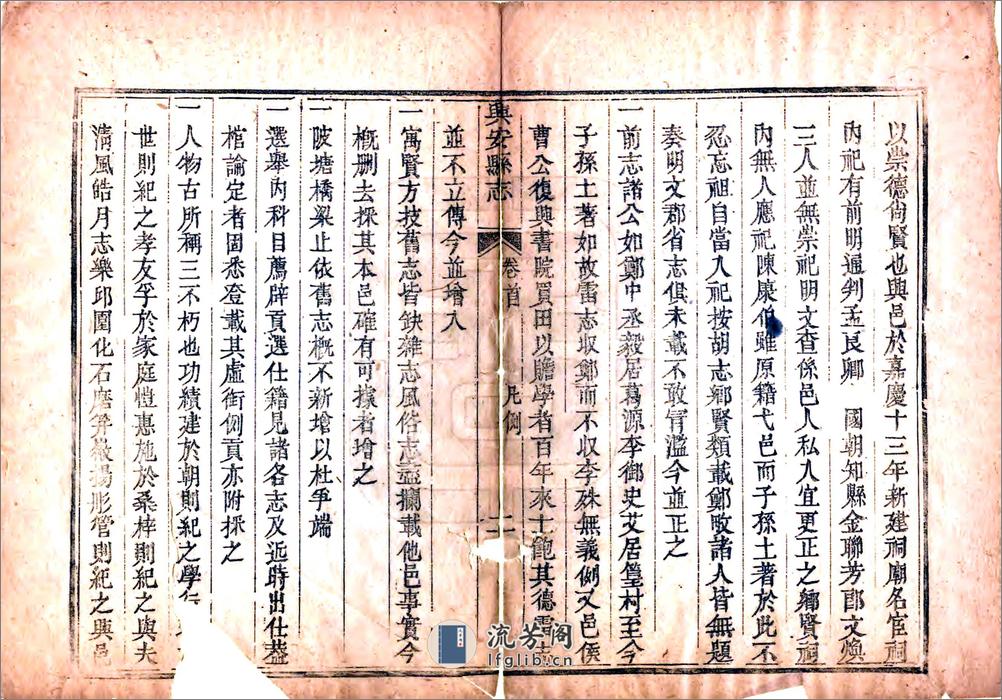 以崇德尚賢也興邑於嘉慶十三年新建祠廟名宦祠
內祀有前明通判孟良卿　國朝知縣金聯芳邵文煥
三人並無崇祀明文查係邑人私入宜更正之鄉賢祠
內無人應祀陳康伯雖原籍弋邑而子孫土著於此不
忍忘祖自當入祀按胡志鄉賢類載鄭畋諸人皆無題
奏明文郡省志俱未載不敢冐濫今並正之
一前志諸公如鄭中丞毅居葛源李御史艾居篁村至今
子孫土著如故雷志収鄭而不収李殊無義例又邑侯
曹公復興書院買田以贍學者百年來士飽其德雷志
並不立傳今並增入
一寓賢方技舊志皆缺雜志風俗志盜攔載他邑事實今
概删去採其本邑確有可據者增之
一陂塘橋梁止依舊志概不新增以杜爭端
一選舉內科目薦辟貢選仕籍見諸各志及近時出仕蓋
棺論定者固悉登載其虛銜例貢亦附採之
一人物古所稱三不朽也功績建於朝則紀之學行
世則紀之孝友孚於家庭愷惠施於桑梓則紀之與夫
淸風皓月志樂邱園化石磨笄徽揚彤管則紀之興邑
興安縣志
卷首
凡例
二
流芳阁
lfglib.cn